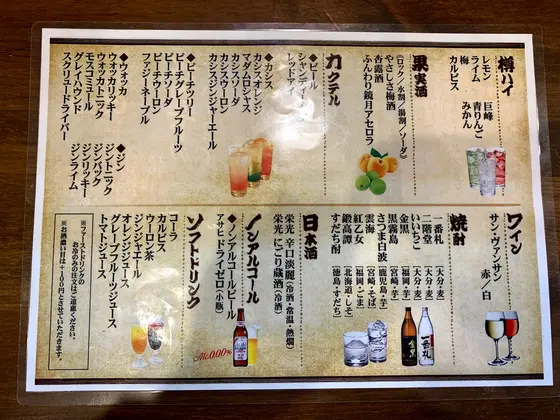 樽ハイ
レモン
ライム
梅
カルピス
巨峰
青りんご
みかん
果実酒
《ロック／水割／湯割／ソーダ》
やさしさ梅酒
杏露酒
ふんわり鏡月アセロラ
カクテル
◆ビール
シャンディー
レッドアイ
◆カシス
カシスオレンジ
マダムロシャス
カシスソーダ
カシスウーロン
カシスジンジャーエール
◆ピーチツリー
ピーチグレープフルーツ
ピーチソーダ
ピーチウーロン
ファジーネーブル
◆ジン
ジントニック
ジンバック
ジンリッキー
ジンライム
◆ウォッカ
ウォッカリッキー
ウォッカトニック
モスコミュール
グレイハウンド
スクリュードライバー
ワイン
サン・ヴァンサン
赤／白
焼酎
一番札 【大分・麦】
二階堂 【大分・麦】
いいちこ 【大分・麦】
金黒 【福岡・芋】
黒霧島 【宮崎・芋】
さつま白波 【鹿児島・芋】
雲海 【宮崎・そば】
紅乙女 【福岡・ごま】
鍛高譚 【北海道・しそ】
すだち酎 【徳島・すだち】
日本酒
栄光 辛口淡麗（冷酒・常温・熱燗）
栄光 にごり蔵酒（冷酒）
ノンアルコール
◆ノンアルコールビール
アサヒドライゼロ（小瓶）
Alc.0.00%
ソフトドリンク
コーラ
カルピス
ウーロン茶
ジンジャエール
オレンジジュース
グレープフルーツジュース
トマトジュース
※ファーストドリンクの
お冷のみの注文はご遠慮ください。
※お酒濃い目は＋100円とさせていただきます。